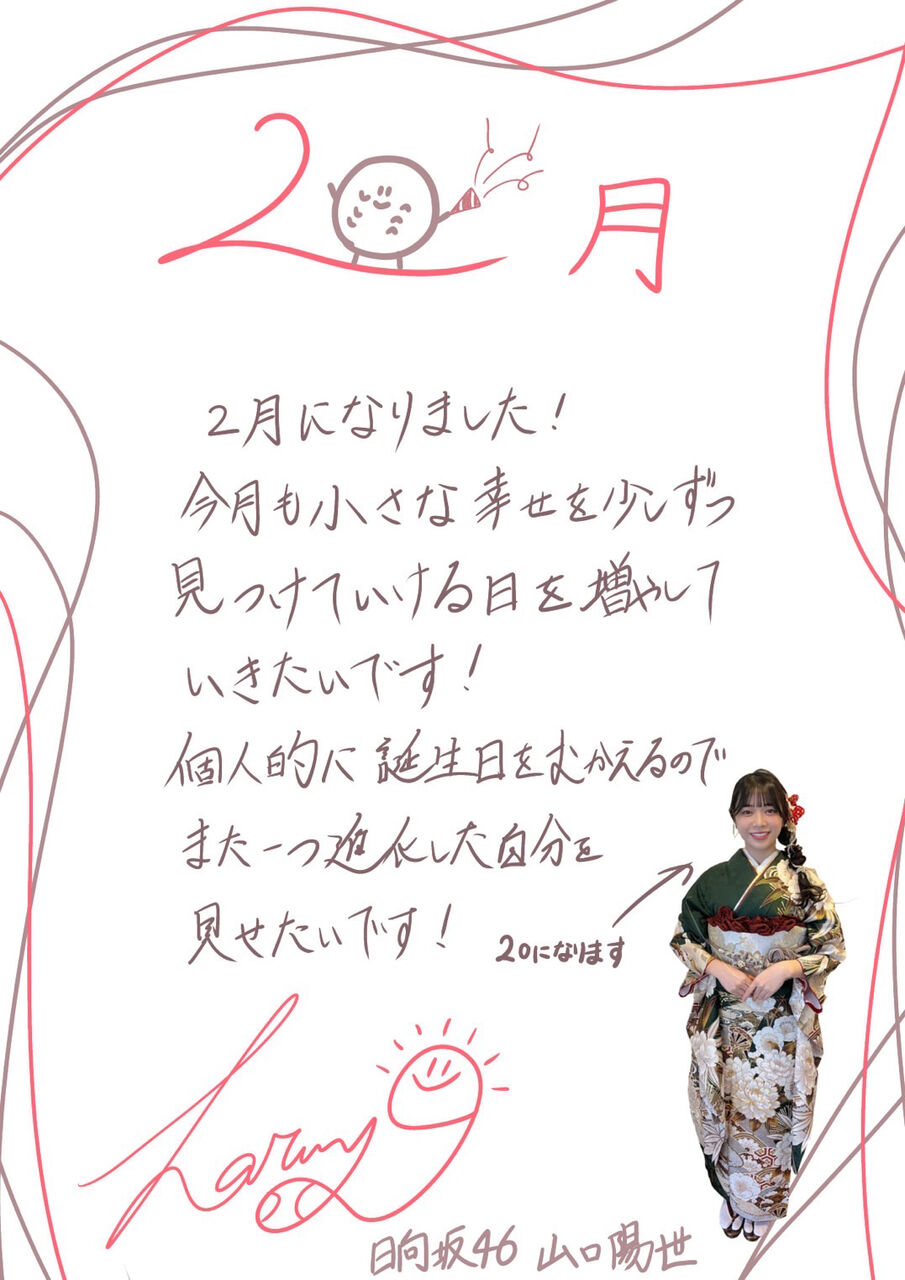 2月
2月になりました！
今月も小さな幸せを少しずつ
見つけていける日を増やして
いきたいです！
個人的に誕生日をむかえるので
また一つ進化した自分を
見せたいです！
20になります
日向坂46 山口陽世